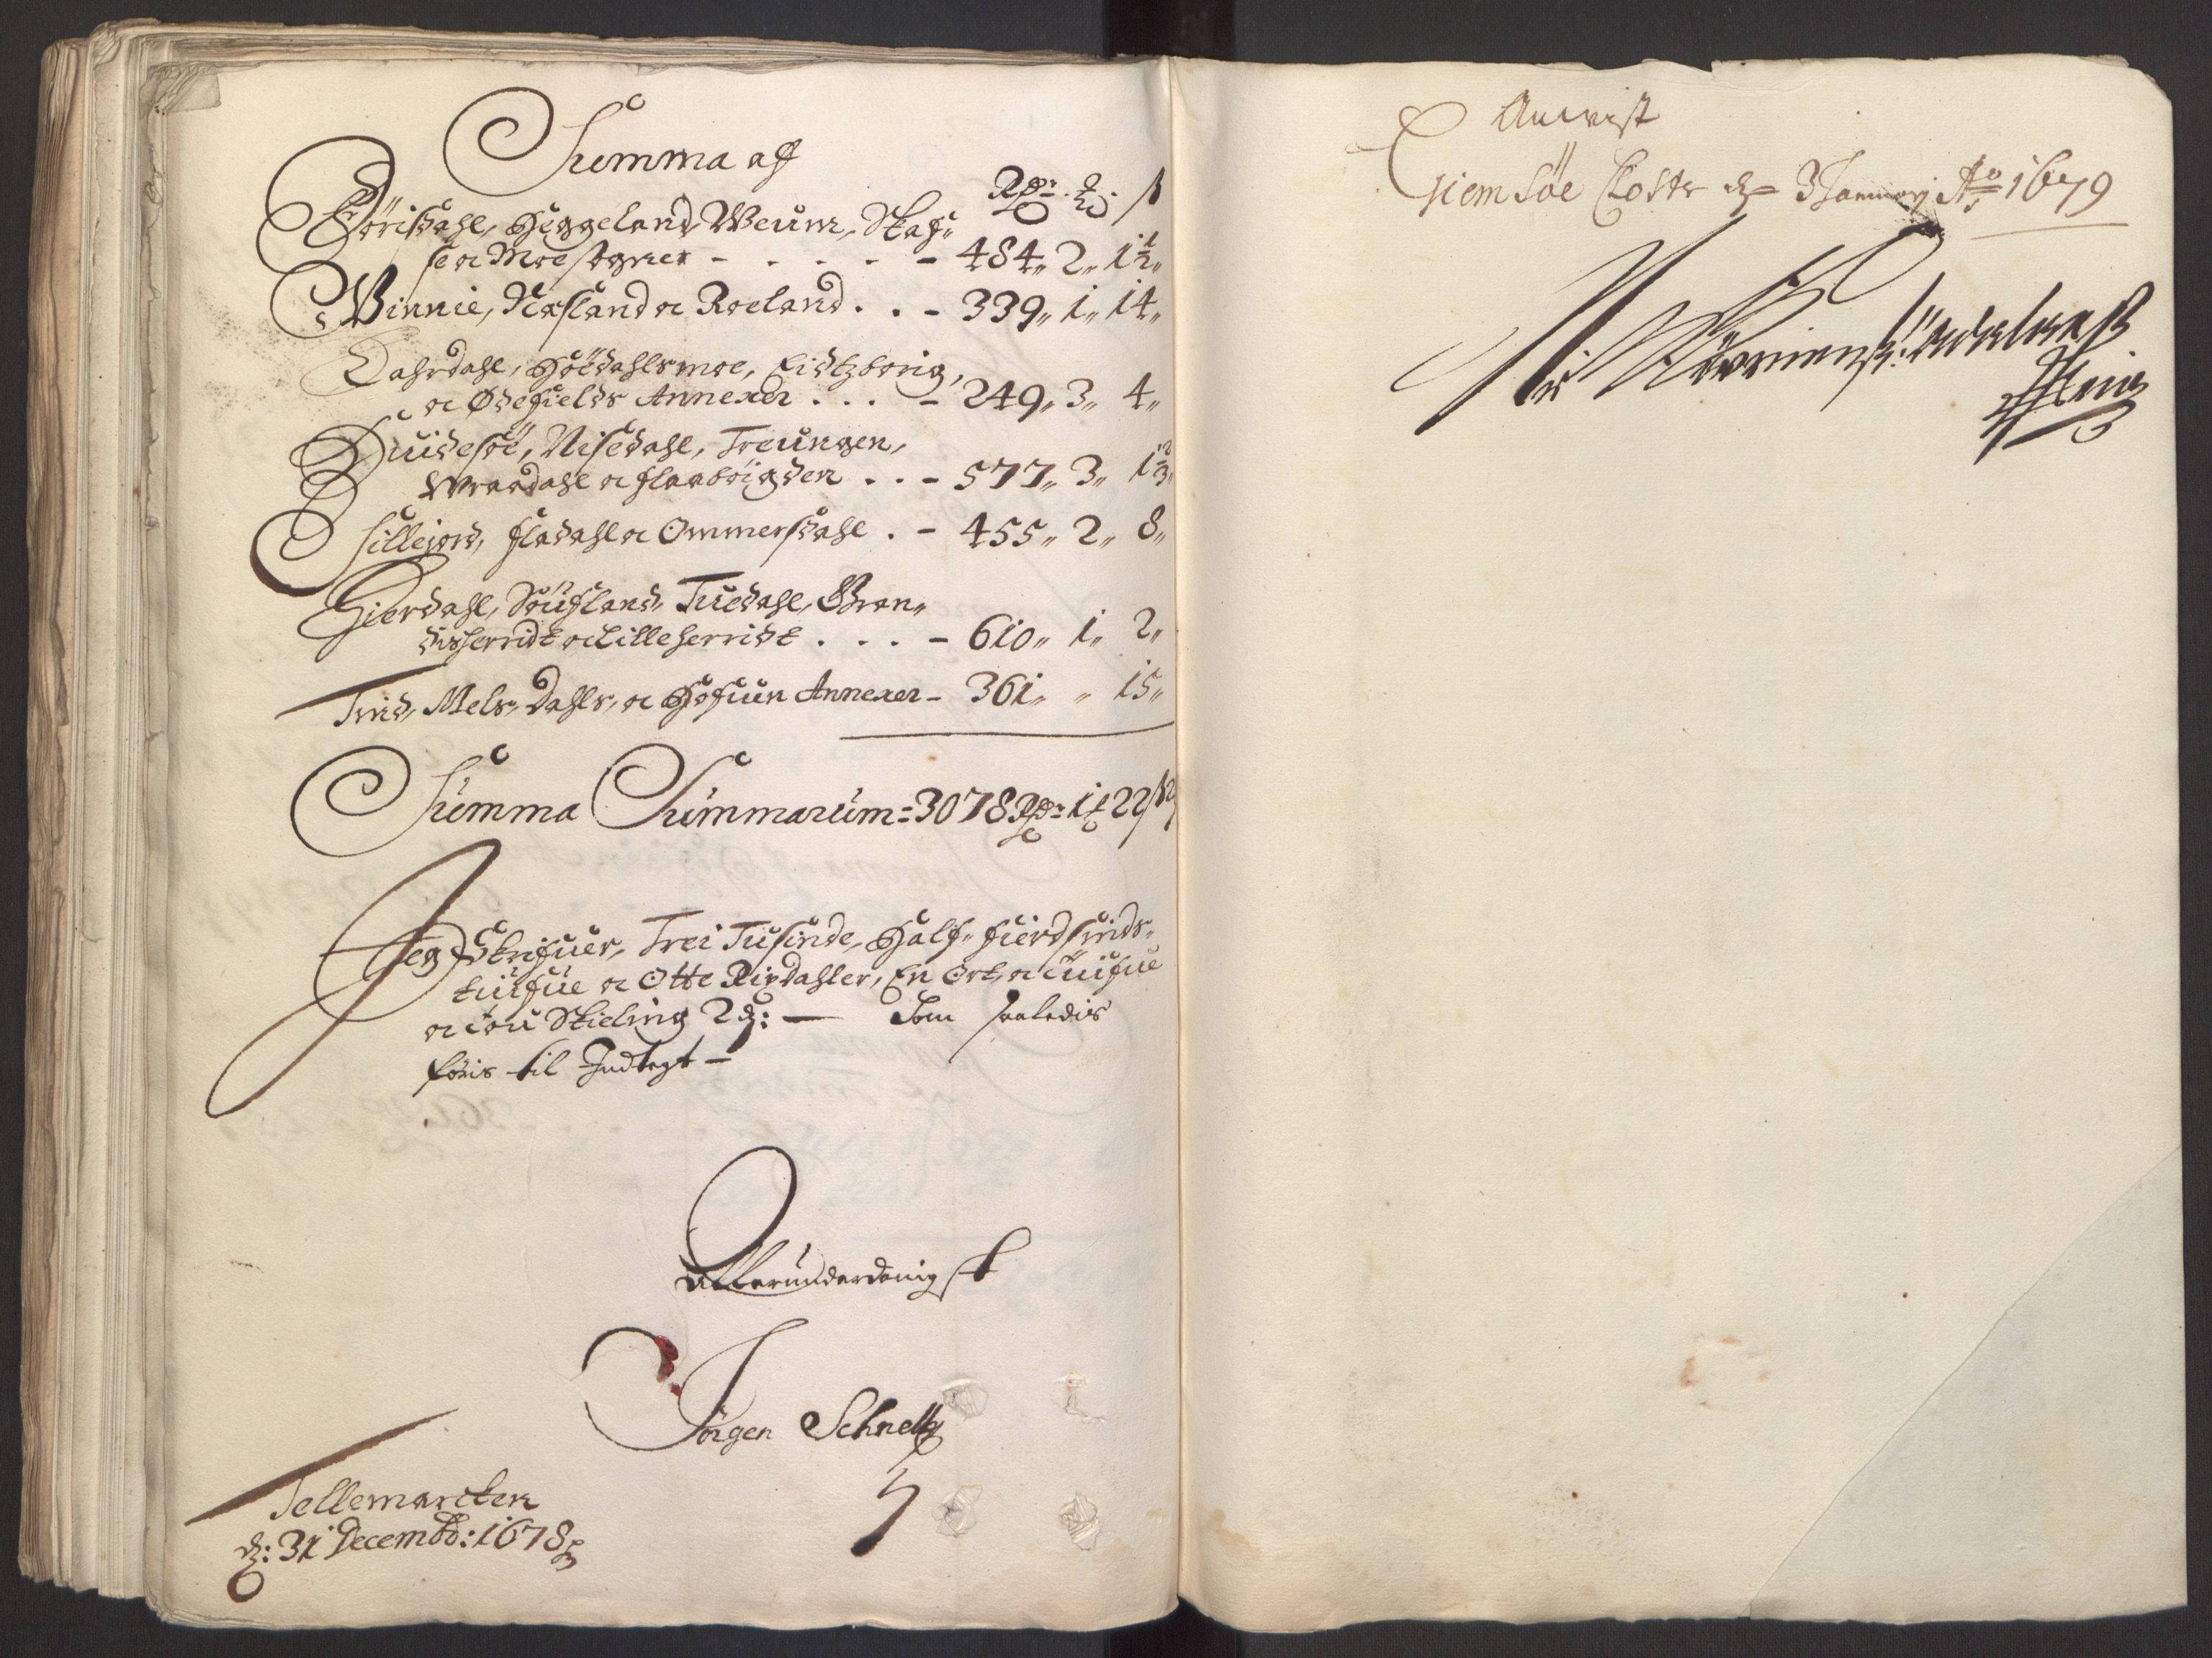 Summa af
Rdr. ort. ß
Föridahl, Heggeland, Weum, Skaf„
se oc Moe Sogner - . . . . - 484„ 2„ 1½„
Winnie, Nesland oc Roeland . . - 339„ 1„ 14„
Lahrdahl, Höidahlsmoe, Eidtzborig,
oc Ødefields Annexer . . . - 249„ 3„ 4„
Huidesöe, Nisedahl, Treungen,
Wraadahl oc Flaaböigden . . - 577„ 3„
Sillejord, Fladahl oc Ommersdahl . - 455„ 2„ 8„
Hierdahl, Söufland, Tuedahl, Gran„
disherridt oc Lilleherridt . . . - 610„ 1„ 2„
Tind, Mels, Dahls, oc Hofuin Annexer - 361„ „ 15„
Summa Summarum = 3078 Rdr 1 22 ß
Jeg Skrifuer, Trei Tusinde, Half„ fierdsinds„
tuifue oc Otte Rixdahler, En Ort, oc tuifue
oc tou Skieling 2 : — Som saaledis
föris til Indtegt —
Allerunderdanigst
Jörgen Schnell
Tellemarcken
d: 31 Decembr: 1678
Anvist
Giemsöe Closter d. 3 Januarij Ao 1679